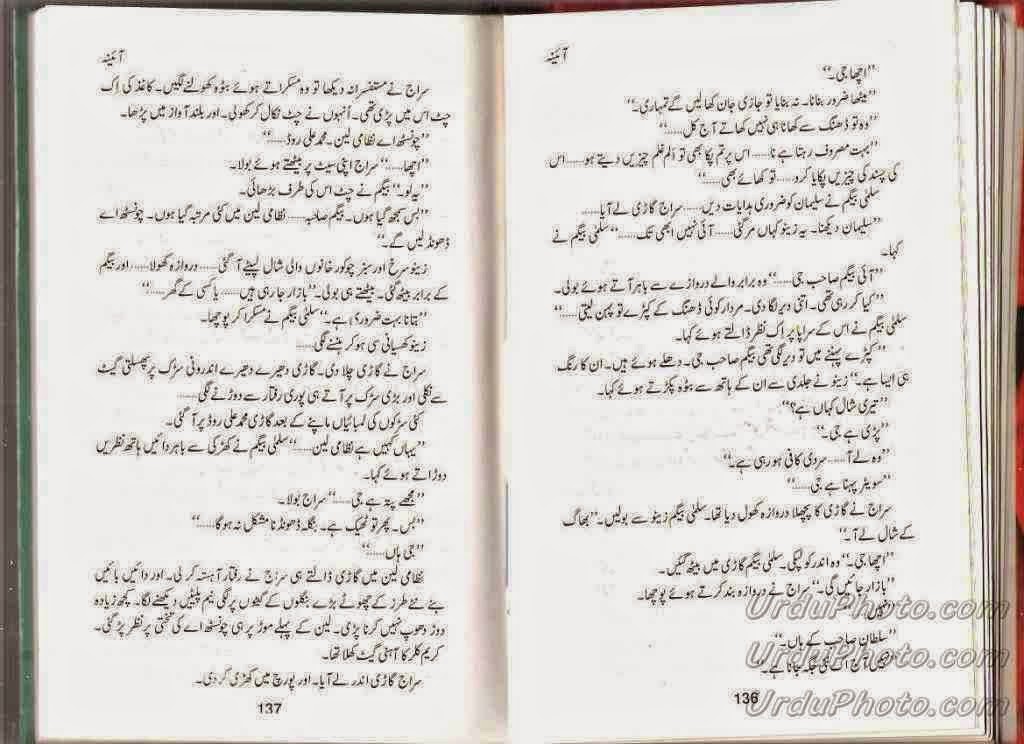 آئینہ
”اچھا جی۔“
”میٹھا ضرور بنانا۔ نہ بنایا تو جازی جان کھا لیں گے تمہاری۔“
”وہ تو ڈھنگ سے کھانا ہی نہیں کھاتے آج کل......“
”بہت مصروف رہتا ہے نا...... اس پر تم پکا بھی تو اَلم غلم چیزیں دیتے ہو...... اس
کی پسند کی چیزیں پکایا کرو...... تو کھائے بھی......“
سلمٰی بیگم نے سلیمان کو ضروری ہدایات دیں...... سراج گاڑی لے آیا......
”سلیمان دیکھنا۔ یہ زینو کہاں مر گئی...... آئی نہیں ابھی تک......“ سلمٰی بیگم نے
کہا۔
”آئی بیگم صاحب جی......“ وہ برابر والے دروازے سے باہر آتے ہوئے بولی۔
”کیا کر رہی تھی۔ اتنی دیر لگا دی۔ مردار کوئی ڈھنگ کے کپڑے تو پہن لیتی......“
سلمٰی بیگم نے اس کے سراپا پر اِک نظر ڈالتے ہوئے کہا۔
”کپڑے پہننے میں تو دیر لگی تھی بیگم صاحب جی۔ دھلے ہوئے ہیں۔ ان کا رنگ
ہی ایسا ہے۔“ زینو نے جلدی سے ان کے ہاتھ سے بٹوہ پکڑتے ہوئے کہا۔
”تیری شال کہاں ہے؟“
”پڑی ہے جی۔“
”وہ لے آ...... سردی کافی ہو رہی ہے۔“
”سویٹر پہنا ہے جی......“
سراج نے گاڑی کا پچھلا دروازہ کھول دیا تھا۔ سلمٰی بیگم زینو سے بولیں۔ ”بھاگ
کے شال لے آ۔“
”اچھا جی۔“ وہ اندر کو لپکی۔ سلمٰی بیگم گاڑی میں بیٹھ گئیں۔
”بازار جائیں گی۔“ سراج نے دروازہ بند کرتے ہوئے پوچھا۔
”نہیں“
”سلطان صاحب کے ہاں۔“
”نہیں آج اک نئی جگہ جانا ہے۔“
136
آئینہ
سراج نے مستفسرانہ دیکھا تو وہ مسکراتے ہوئے بٹوہ کھولنے لگیں۔ کاغذ کی اِک
چٹ اس میں پڑی تھی۔ اُنہوں نے چٹ نکال کر کھولی۔ اور بلند آواز میں پڑھا۔
”چونسٹھ اے نظامی لین۔ محمد علی روڈ......“
”اچھا......“ سراج اپنی سیٹ پر بیٹھتے ہوئے بولا۔
”یہ لو۔“ بیگم نے چٹ اس کی طرف بڑھائی۔
”بس سمجھ گیا ہوں۔ بیگم صاحبہ...... نظامی لین میں کئی مرتبہ گیا ہوں۔ چونسٹھ اے
ڈھونڈ لیں گے۔“
زینو سرخ اور سبز چوکور خانوں والی شال لپیٹے آ گئی...... دروازہ کھولا...... اور بیگم
کے برابر بیٹھ گئی۔ بیٹھتے ہی بولی۔ ”بازار جا رہی ہیں...... یا کسی کے گھر......“
”بتانا بہت ضروری ہے۔“ سلمٰی بیگم نے مسکرا کر پوچھا۔
زینو کھسیانی سی ہو کر ہنسنے لگی......
سراج نے گاڑی چلا دی۔ گاڑی دھیرے دھیرے اندرونی سڑک پر پھسلتی گیٹ
سے نکلی اور بڑی سڑک پر آتے ہی پوری رفتار سے دوڑنے لگی......
کئی سڑکوں کی لمبائیاں ماپنے کے بعد گاڑی محمد علی روڈ پر آ گئی۔
”یہاں کہیں ہے نظامی لین......“ سلمٰی بیگم نے کھڑکی سے باہر دائیں ہاتھ نظریں
دوڑاتے ہوئے کہا۔
”مجھے پتہ ہے جی......“ سراج بولا۔
”بس۔ پھر تو ٹھیک ہے۔ بنگلہ ڈھونڈنا مشکل نہ ہوگا......“
”جی ہاں......“
نظامی لین میں گاڑی ڈالتے ہی سراج نے رفتار آہستہ کر لی۔ اور دائیں بائیں
بنے نئے طرز کے چھوٹے بڑے بنگلوں کے گیٹوں پر لگی نیم پلیٹیں دیکھنے لگا۔ کچھ زیادہ
دوڑ دھوپ نہیں کرنا پڑی۔ لین کے پہلے موڑ پر ہی چونسٹھ اے کی تختی پر نظر پڑ گئی۔
کریم کلر کا آہنی گیٹ کھلا تھا۔
سراج گاڑی اندر لے آیا۔ اور پورچ میں کھڑی کر دی۔
137
UrduPhoto.com
UrduPhoto.com
UrduPhoto.com